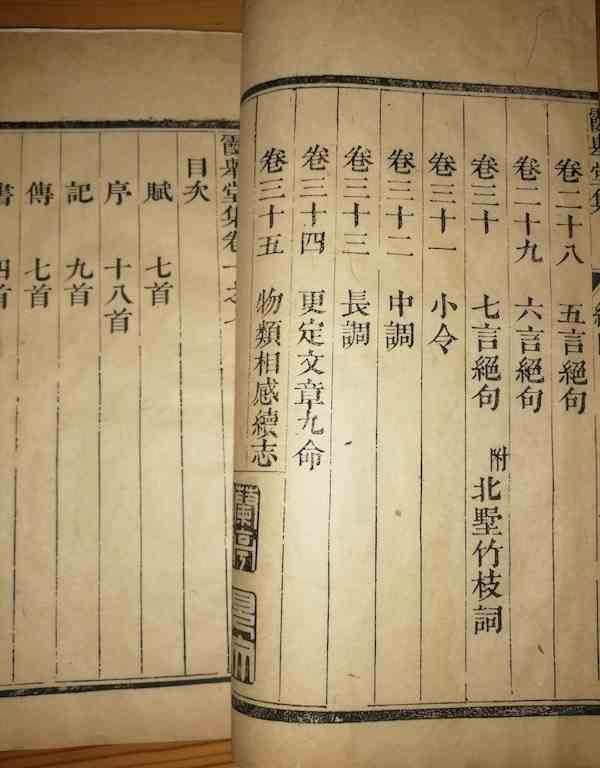 霞舉堂集
卷二十八　五言絕句
卷二十九　六言絕句
卷三十　七言絕句　附北墅竹枝詞
卷三十一　小令
卷三十二　中調
卷三十三　長調
卷三十四　更定文章九命
卷三十五　物類相感續志
蘭亭
霞舉堂集卷一之
目次
賦　七首
序　十八首
記　九首
傳　七首
書　四首